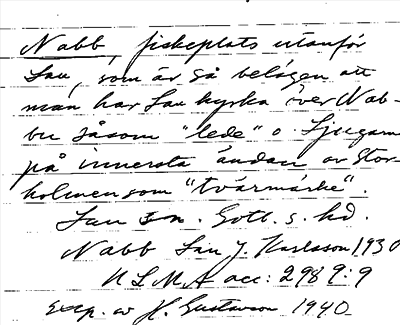 Nabb, fiskeplats utanför
Lau, som är så belägen att
man har Lau kyrka över Nab-
bu såsom "lede" o. Ljugarn
på innersta ändan av Stor-
holmen som "tvärmärke".
Lau sn. Gotl. s. hd.
Nabb Lau J. Karlsson 1930
ULMA acc: 2989:9
Exc. av H. Gustavson 1940